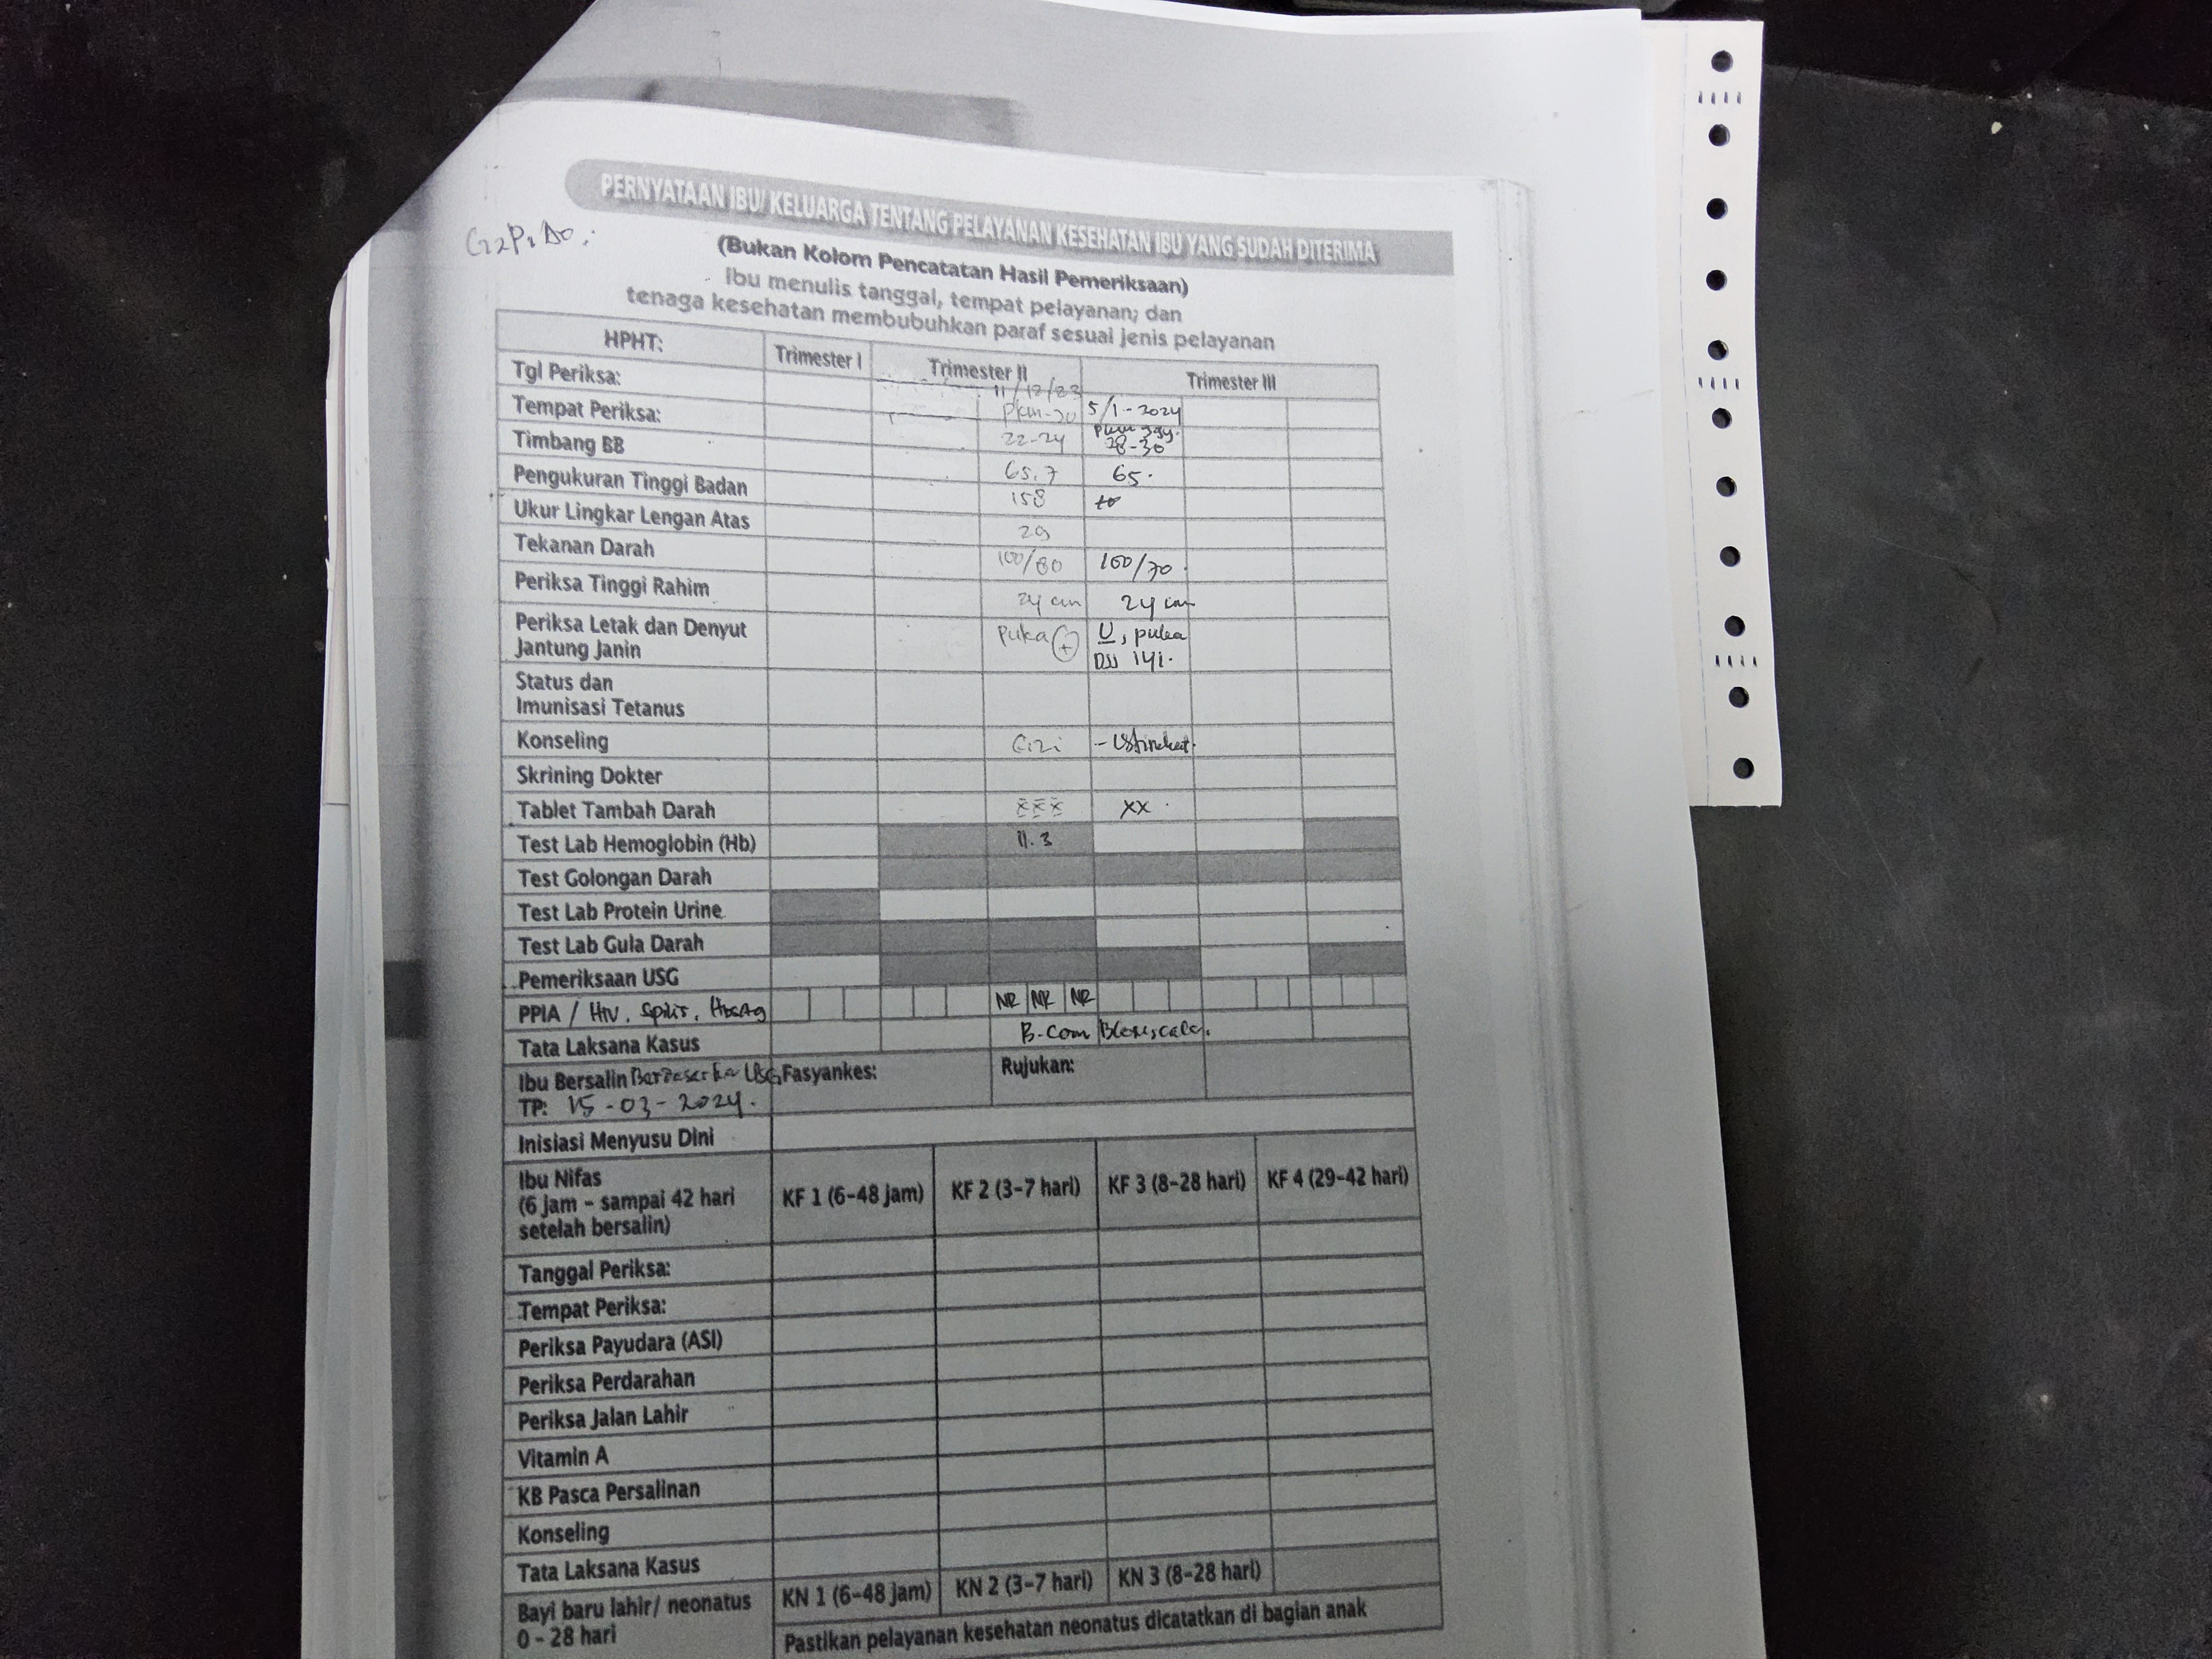 PERNYATAAN IBU/ KELUARGA TENTANG PELAYANAN KESEHATAN IBU YANG SUDAH DITERIMA
G2P1A0.
(Bukan Kolom Pencatatan Hasil Pemeriksaan)
Ibu menulis tanggal, tempat pelayanan; dan
tenaga kesehatan membubuhkan paraf sesuai jenis pelayanan
HPHT: Trimester I Trimester II Trimester III
Tgl Periksa: 11/12/23 5/1-2024
Tempat Periksa: PKM
22-24 28-30
Timbang BB 65.7 65.
Pengukuran Tinggi Badan 158
Ukur Lingkar Lengan Atas 29
Tekanan Darah 100/80 100/70
Periksa Tinggi Rahim 24 cm 24 cm
Periksa Letak dan Denyut Jantung Janin puka (+) U, puka
DJJ 141.
Status dan
Imunisasi Tetanus
Konseling Gizi - Istirahat.
Skrining Dokter
Tablet Tambah Darah XXX XX
Test Lab Hemoglobin (Hb) 11.3
Test Golongan Darah
Test Lab Protein Urine
Test Lab Gula Darah
Pemeriksaan USG
PPIA / HIV, Spilis, HbsAg NR NR NR
Tata Laksana Kasus B-Com
Ibu Bersalin USG Fasyankes: Rujukan:
TP: 15-03-2024.
Inisiasi Menyusu Dini
Ibu Nifas
(6 jam – sampai 42 hari
setelah bersalin)
KF 1 (6–48 jam) KF 2 (3–7 hari) KF 3 (8–28 hari) KF 4 (29–42 hari)
Tanggal Periksa:
Tempat Periksa:
Periksa Payudara (ASI)
Periksa Perdarahan
Periksa Jalan Lahir
Vitamin A
KB Pasca Persalinan
Konseling
Tata Laksana Kasus
Bayi baru lahir/ neonatus
0 – 28 hari
KN 1 (6–48 jam) KN 2 (3–7 hari) KN 3 (8–28 hari)
Pastikan pelayanan kesehatan neonatus dicatatkan di bagian anak